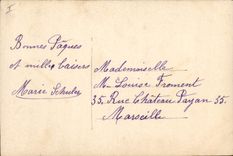 I
Bonnes Pâques
et mille baisers
Marie Schuler
Mademoiselle
Mlle Louise Froment
35, Rue Château Payan 35.
Marseille